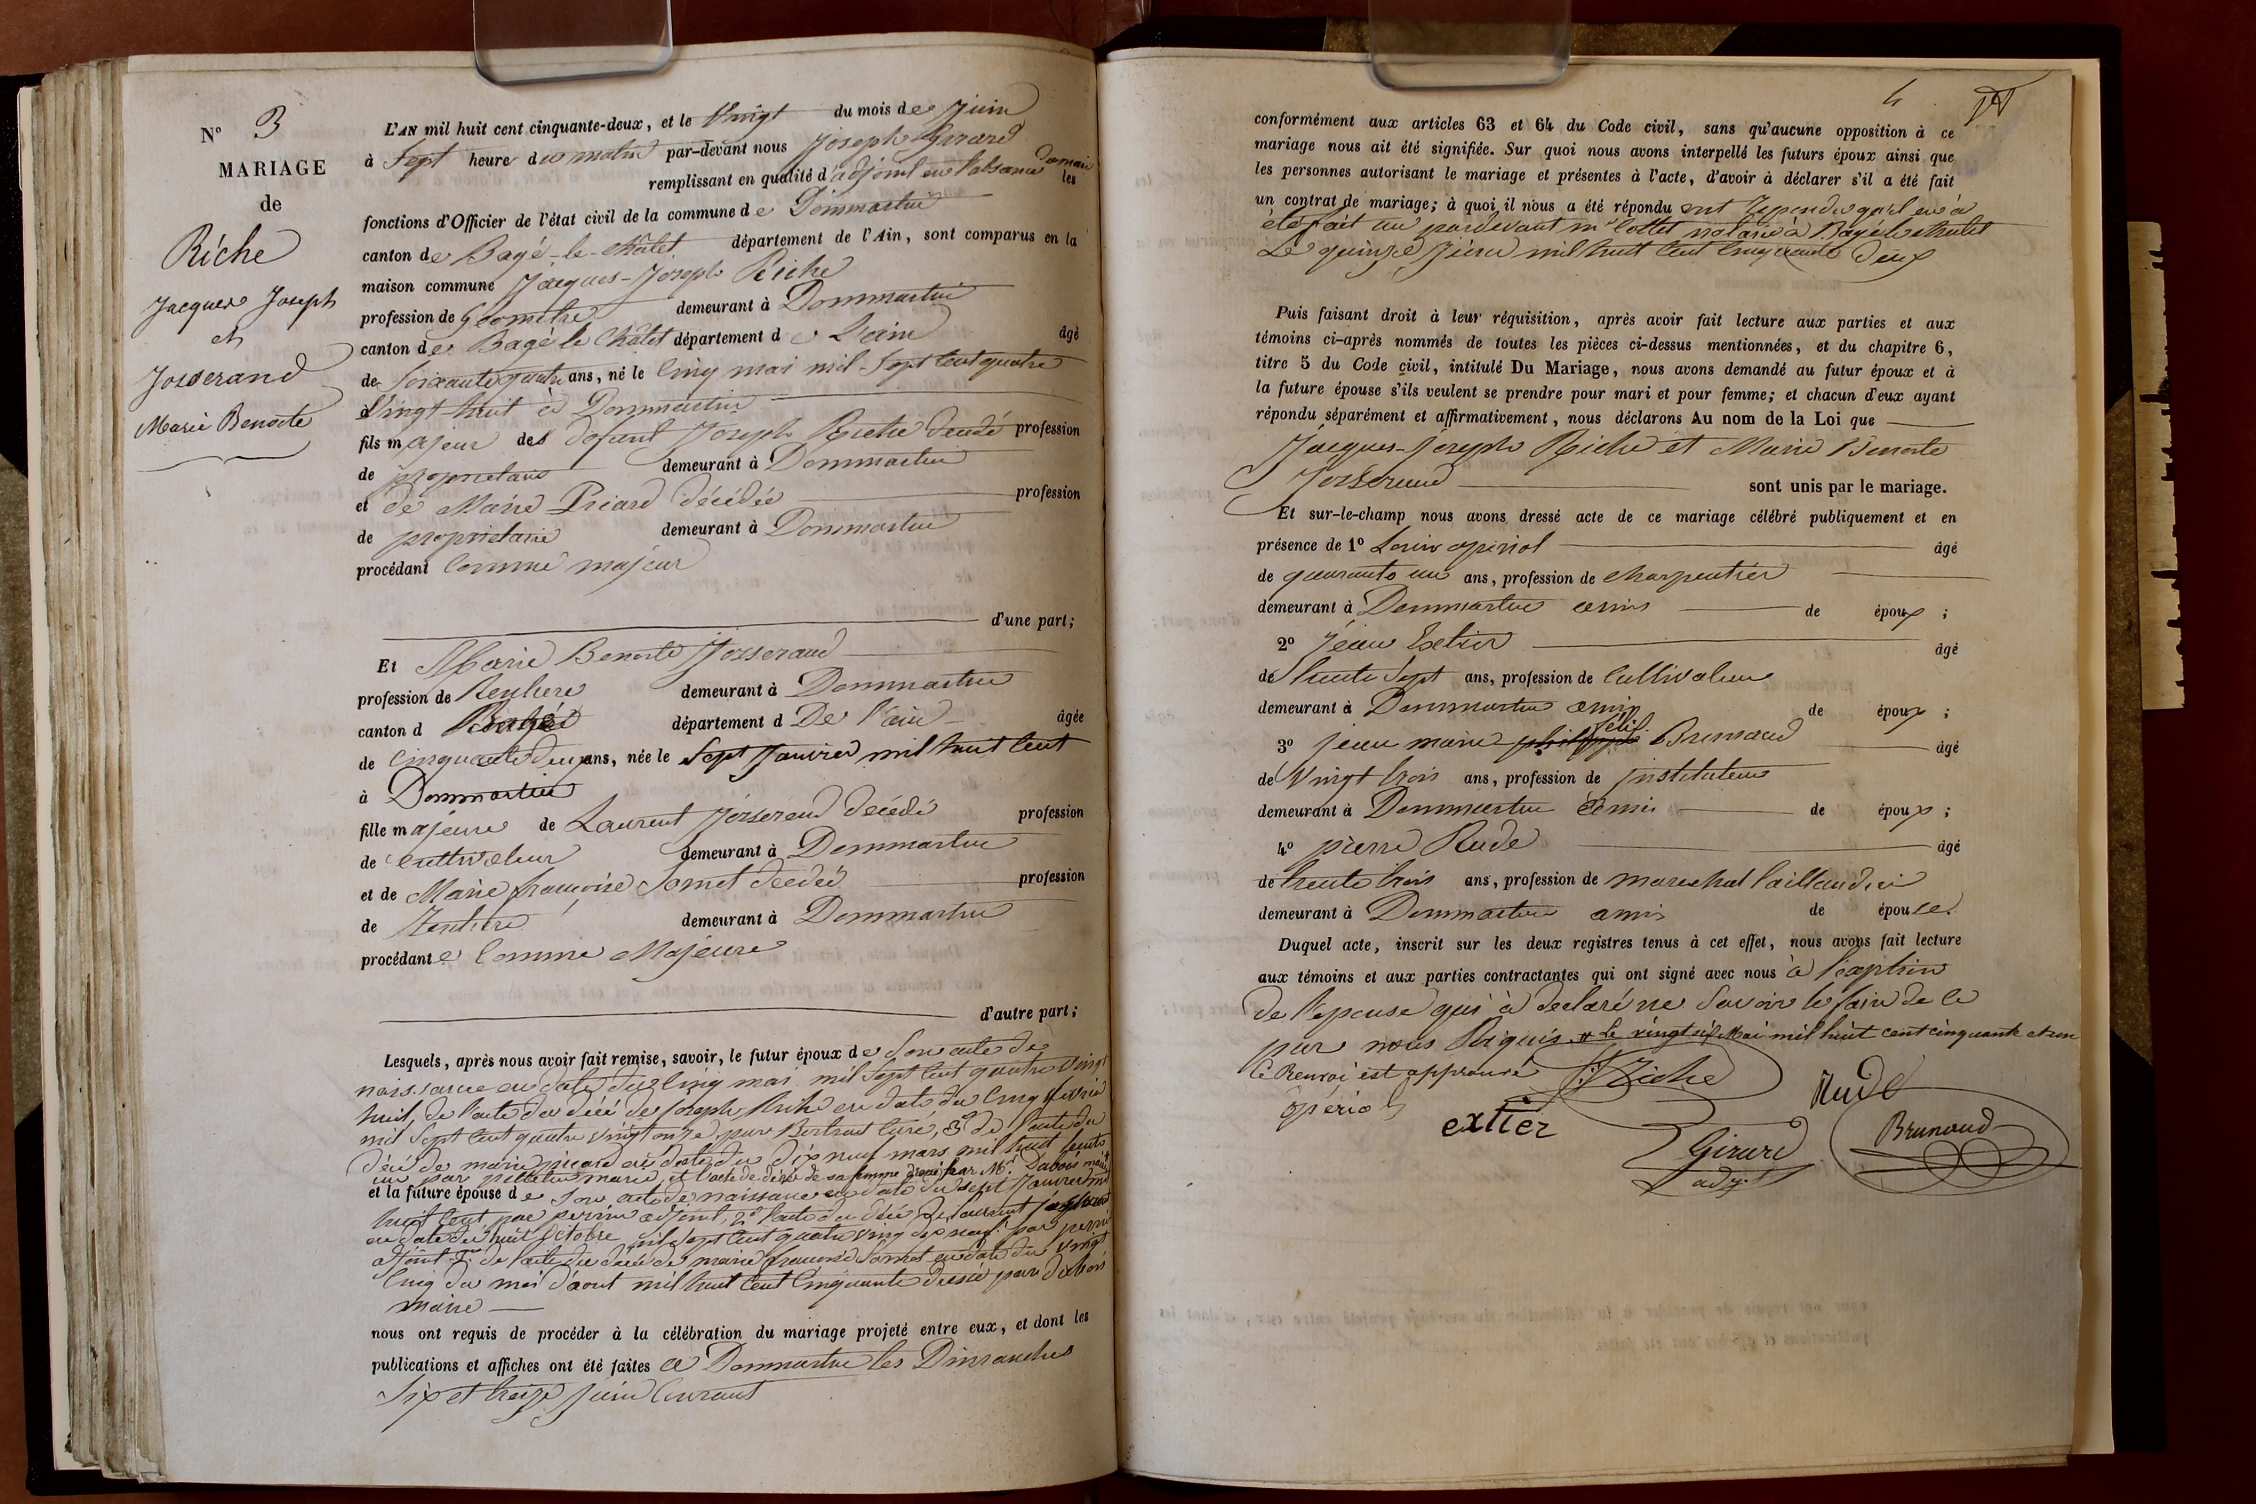 N° 3
MARIAGE
de
Riche
Jacques Joseph
et
Josserand
Marie Benoite
L'AN mil huit cent cinquante-deux, et le Vingt du mois de Juin
à Sept heure du matin par-devant nous Joseph Girard
remplissant en qualité d'adjoint en l'absence du maire les
fonctions d'Officier de l'état civil de la commune de Dommartin
canton de Bagé-le-Châtel département de l'Ain, sont comparus en la
maison commune Jacques-Joseph Riche
profession de Géomètre demeurant à Dommartin
canton de Bagé le Châtel département de L'ain âgé
de Soixante quatre ans, né le Cinq mai mil Sept Cent quatre
Vingt huit à Dommartin
fils majeur de défunt Joseph Riche décédé profession
de propriétaire demeurant à Dommartin
et de Marie Picard décédée profession
de propriétaire demeurant à Dommartin
procédant Comme majeur
d'une part;
Et Marie Benoite Josserand
profession de Rentiere demeurant à Dommartin
canton d Bagé département d De l'ain âgée
de Cinquante deux ans, née le Sept Janvier mil huit Cent
à Dommartin
fille majeure de Laurent Josserand décédé profession
de Cultivateur demeurant à Dommartin
et de Marie françoise Somet décédée profession
de Rentière demeurant à Dommartin
procédante Comme Majeure
d'autre part;
Lesquels, après nous avoir fait remise, savoir, le futur époux de Son acte de
naissance en date du Cinq mai mil Sept Cent quatre Vingt
huit, de l'acte de décé de Joseph Riche en date du Cinq février
mil Sept Cent quatre Vingt onze, par Bertrand Curé, 3° de l'acte du
décé de marie picard en date du dix neuf mars mil huit Cents
un par pelletier maire, et l'acte de décès de sa femme dressé par Mr Dubois maire
et la future épouse de Son acte de naissance en date du Sept Janvier mil
huit Cent par perrin adjoint, 2° l'acte du décé de laurent Josserand
en date du huit Octobre mil Sept Cent quatre Ving dix neuf par perrin
adjoint 3° de l'acte du décé de marie francoise Somet en date du Vingt
Cinq du moi d'aout mil huit Cent Cinquante dressé par dubois
maire
nous ont requis de procéder à la célébration du mariage projeté entre eux, et dont les
publications et affiches ont été faites a Dommartin les Dimanches
Six et treize Juin Courant
4
conformément aux articles 63 et 64 du Code civil, sans qu'aucune opposition à ce
mariage nous ait été signifiée. Sur quoi nous avons interpellé les futurs époux ainsi que
les personnes autorisant le mariage et présentes à l'acte, d'avoir à déclarer s'il a été fait
un contrat de mariage; à quoi il nous a été répondu ont repondu qu'il en a
été fait un pardevant me Cottet notaire à Bagé le Chatel
Le quinze Juin mil huit Cent Cinquante deux
Puis faisant droit à leur réquisition, après avoir fait lecture aux parties et aux
témoins ci-après nommés de toutes les pièces ci-dessus mentionnées, et du chapitre 6,
titre 5 du Code civil, intitulé Du Mariage, nous avons demandé au futur époux et à
la future épouse s'ils veulent se prendre pour mari et pour femme; et chacun d'eux ayant
répondu séparément et affirmativement, nous déclarons Au nom de la Loi que
Jacques-Joseph Riche et Marie Benoite
Josserand sont unis par le mariage.
Et sur-le-champ nous avons dressé acte de ce mariage célébré publiquement et en
présence de 1° Louis opériol âgé
de quarante un ans, profession de charpentier
demeurant à Dommartin amis de époux ;
2° Jean Extier âgé
de trente Sept ans, profession de Cultivateur
demeurant à Dommartin amis de époux ;
3° Jean marie philippe félix Brunaud âgé
de Vingt trois ans, profession de instituteur
demeurant à Dommartin amis de époux ;
4° pierre Rude âgé
de trente trois ans, profession de marechal taillandier
demeurant à Dommartin amis de épouse.
Duquel acte, inscrit sur les deux registres tenus à cet effet, nous avons fait lecture
aux témoins et aux parties contractantes qui ont signé avec nous à l'exeption
de l'epouse qui à declaré ne Savoir le faire de ce
par nous Réquis # Le vingt six Mai mil huit cent cinquante et un
Ce Renvoi est approuvé J. J. Riche
Rude
opériol
extier
Girard
adj.t
Brunaud